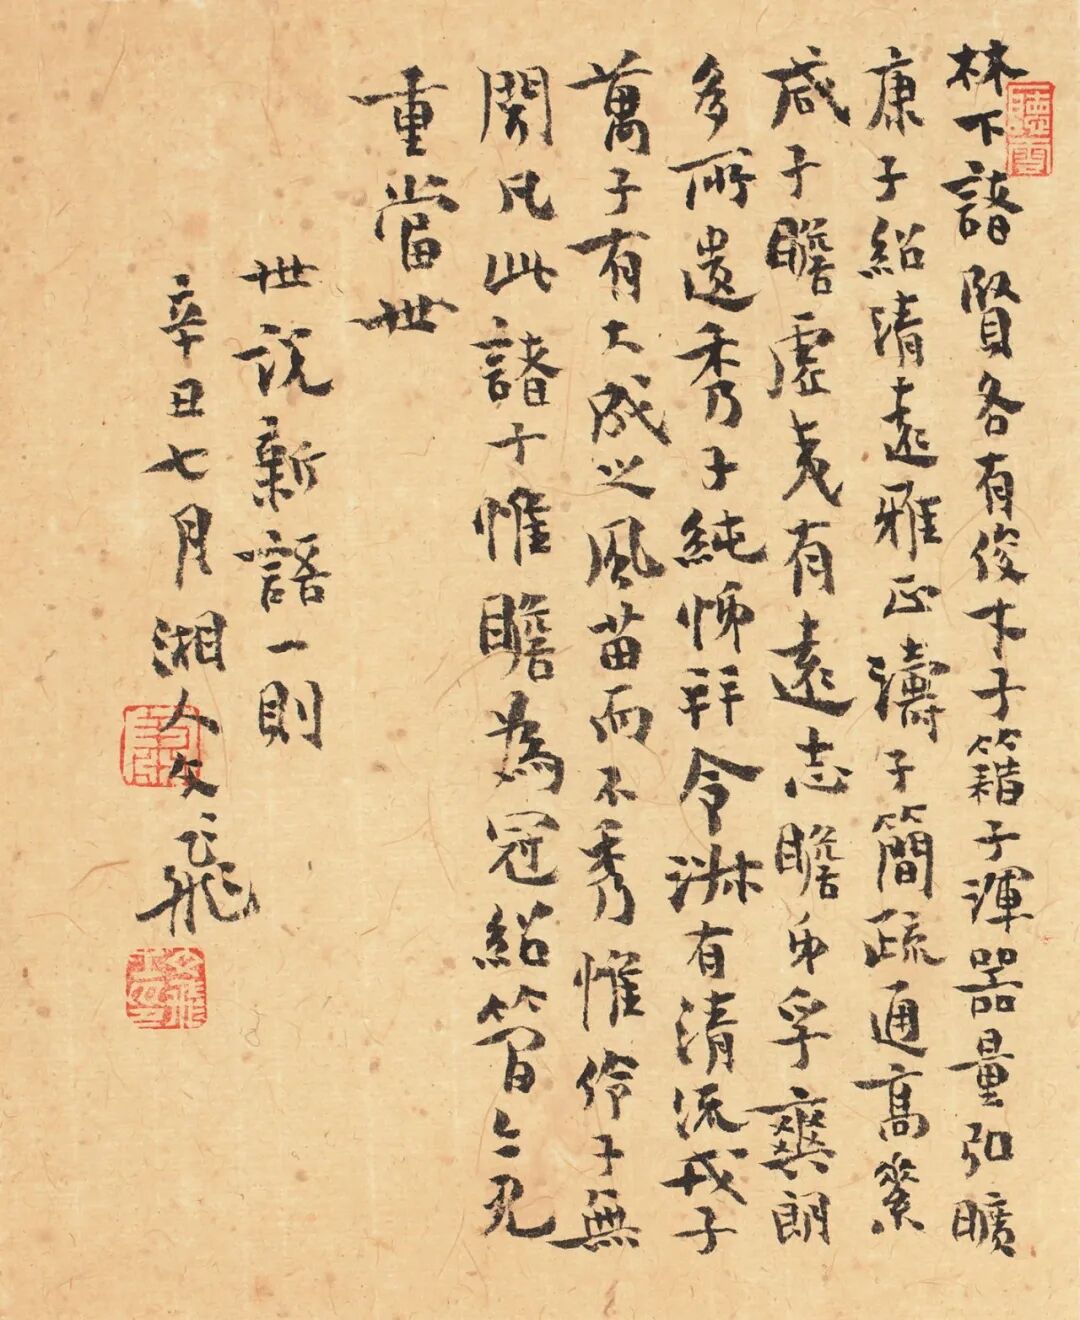 林下諸賢各有俊才子籍子渾器量弘曠
康子紹清遠雅正濤子簡疏通高素
咸子瞻虛夷有遠志瞻弟孚爽朗
多所遺秀子純悌并令淑有清流戎子
萬子有大成之風苗而不秀惟伶子無
聞凡此諸子惟瞻為冠紹簡亦見
重當世
世說新語一則
辛丑七月湘人文飛